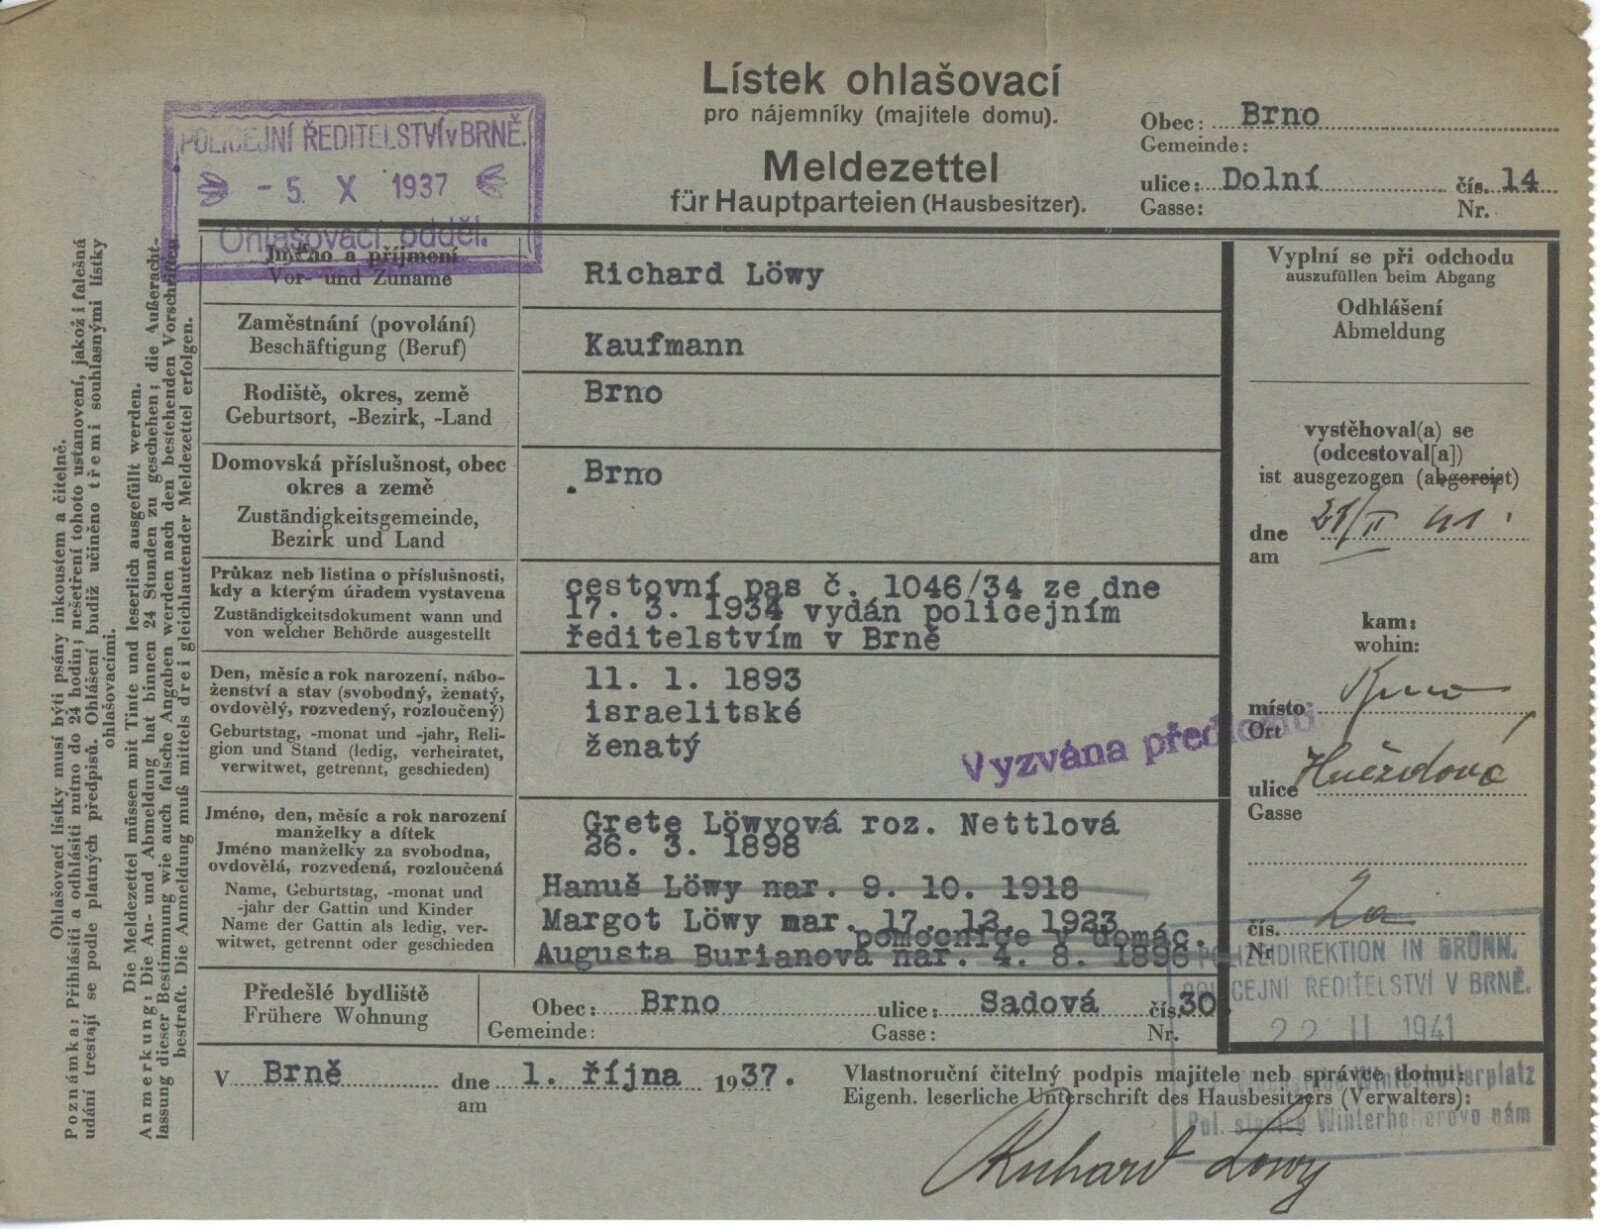 Lístek ohlašovací
pro nájemníky (majitele domu).
Meldezettel
für Hauptparteien (Hausbesitzer).
Obec: Brno
Gemeinde:
ulice: Dolní čís. 14
Gasse: Nr.
POLICEJNÍ ŘEDITELSTVÍ v BRNĚ.
- 5. X 1937
Ohlašovací odděl.
Poznámka: Přihlásiti a odhlásiti nutno do 24 hodin; nešetření tohoto ustanovení, jakož i falešná
udání trestají se podle platných předpisů. Ohlášení budiž učiněno třemi souhlasnými lístky
ohlašovacími.
Ohlašovací lístky musí býti psány inkoustem a čitelně.
Die Meldezettel müssen mit Tinte und leserlich ausgefüllt werden.
Anmerkung: Die An- und Abmeldung hat binnen 24 Stunden zu geschehen; die Außeracht-
lassung dieser Bestimmung wie auch falsche Angaben werden nach den bestehenden Vorschriften
bestraft. Die Anmeldung muß mittels drei gleichlautender Meldezettel erfolgen.
Jméno a příjmení
Vor- und Zuname
Richard Löwy
Zaměstnání (povolání)
Beschäftigung (Beruf)
Kaufmann
Rodiště, okres, země
Geburtsort, -Bezirk, -Land
Brno
Domovská příslušnost, obec
okres a země
Zuständigkeitsgemeinde,
Bezirk und Land
Brno
Průkaz neb listina o příslušnosti,
kdy a kterým úřadem vystavena
Zuständigkeitsdokument wann und
von welcher Behörde ausgestellt
cestovní pas č. 1046/34 ze dne
17. 3. 1934 vydán policejním
ředitelstvím v Brně
Den, měsíc a rok narození, nábo-
ženství a stav (svobodný, ženatý,
ovdovělý, rozvedený, rozloučený)
Geburtstag, -monat und -jahr, Reli-
gion und Stand (ledig, verheiratet,
verwitwet, getrennt, geschieden)
11. 1. 1893
israelitské
ženatý
Vyzvána
Jméno, den, měsíc a rok narození
manželky a dítek
Jméno manželky za svobodna,
ovdovělá, rozvedená, rozloučená
Name, Geburtstag, -monat und
-jahr der Gattin und Kinder
Name der Gattin als ledig, ver-
witwet, getrennt oder geschieden
Grete Löwyová roz. Nettlová
26. 3. 1898
Hanuš Löwy nar. 9. 10. 1918
Margot Löwy nar. 17. 12. 1923
pomocnice v domác.
Augusta Burianová nar. 4. 8. 1896
Předešlé bydliště
Frühere Wohnung
Obec: Brno ulice: Sadová čís. 30
Gemeinde: Gasse: Nr.
V Brně dne 1. října 1937.
am
Vlastnoruční čitelný podpis majitele neb správce domu:
Eigenh. leserliche Unterschrift des Hausbesitzers (Verwalters):
Richard Löwy
Vyplní se při odchodu
auszufüllen beim Abgang
Odhlášení
Abmeldung
vystěhoval(a) se
(odcestoval[a])
ist ausgezogen (abgereist)
dne 21/II 41.
am
kam:
wohin:
místo Brno
Ort
ulice Hvězdová
Gasse
čís. 2a
Nr
POLIZEIDIREKTION IN BRÜNN.
POLICEJNÍ ŘEDITELSTVÍ V BRNĚ.
22 II 1941
Winterhollerplatz
Pol. stanice Winterhollerovo nám